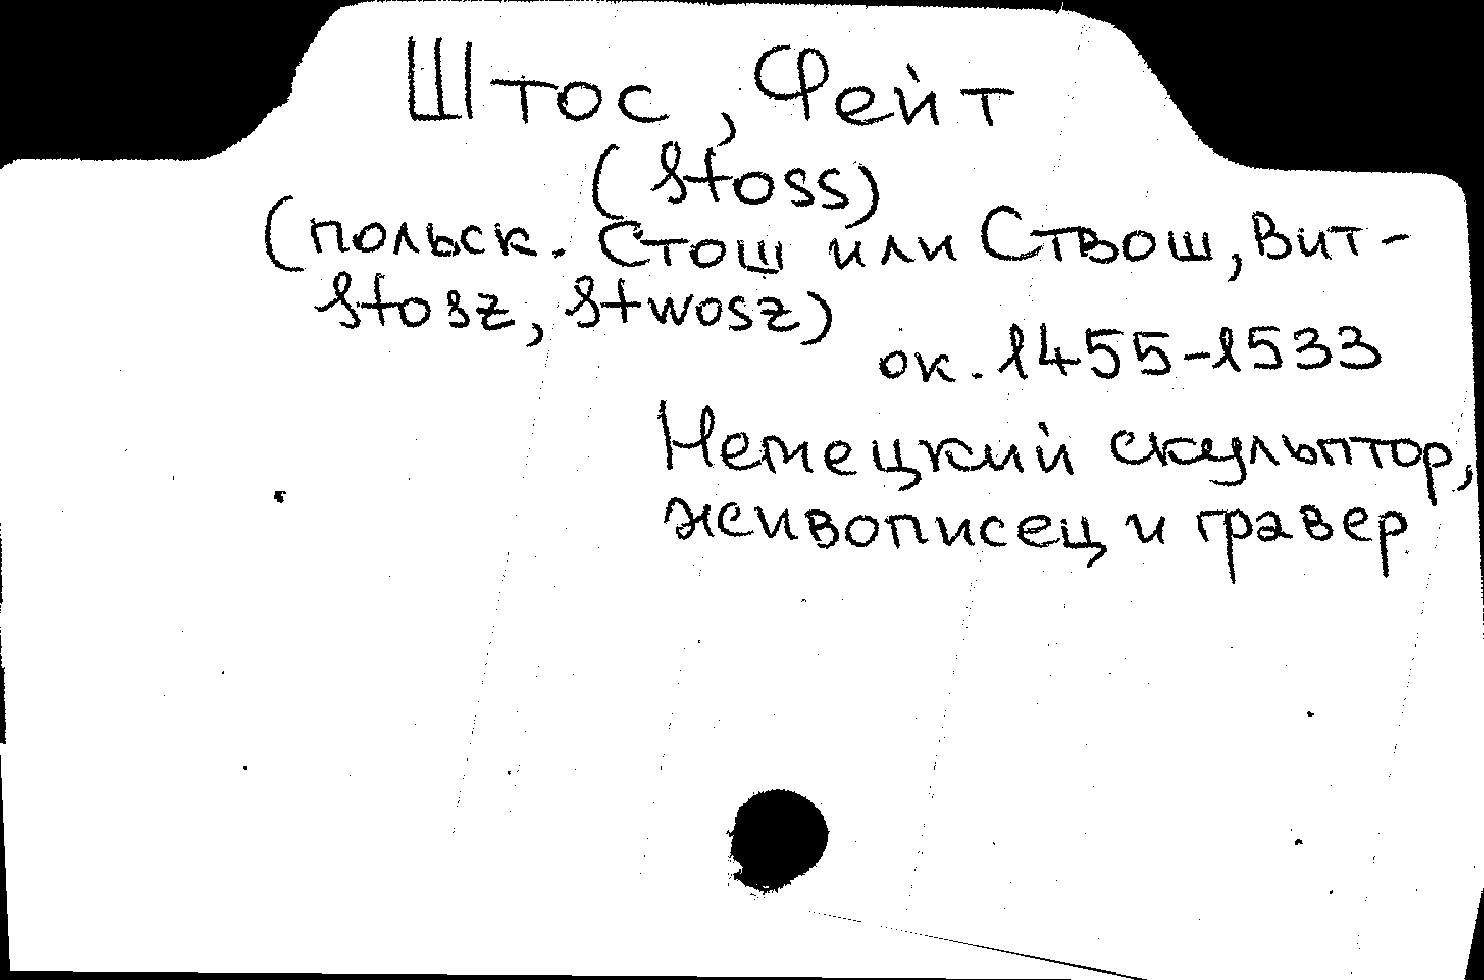 Штос, Фейт
(Stoss)
(польск. Стош или Ствош, Вит-
Stosz, Stwosz)
ок. 1455-1533
Немецкий скульптор,
живописец и гравер